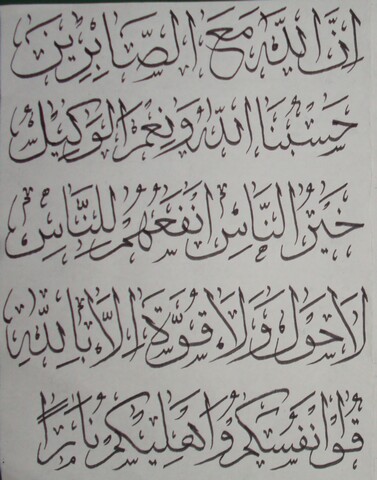 اِنَّ اللّٰهَ مَعَ الصَّابِرِينَ
حَسْبُنَا اللّٰهُ وَنِعْمَ الْوَكِيلُ
خَيْرُ النَّاسِ اَنْفَعُهُمْ لِلنَّاسِ
لَا حَوْلَ وَلَا قُوَّةَ اِلَّا بِاللّٰهِ
قُوا اَنْفُسَكُمْ وَاَهْلِيكُمْ نَارًا